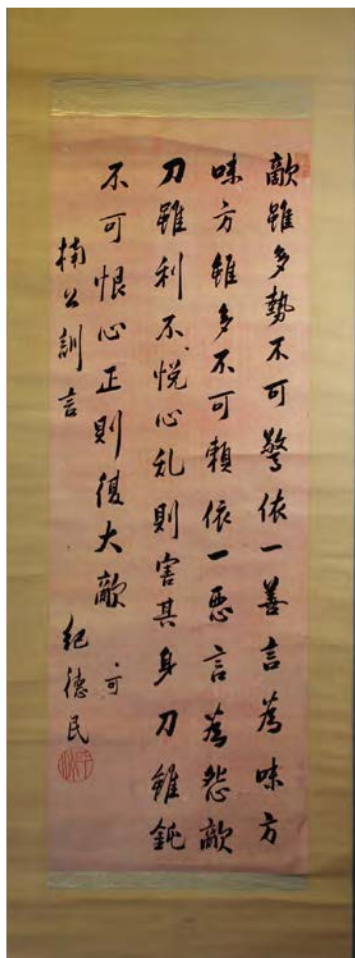 敵雖多勢不可驚依一善言為味方
味方雖多不可頼依一惡言為怨敵
刀雖利不悦心乱則害其身刀雖鈍
不可恨心正則復大敵
可
楠公訓言 紀德民